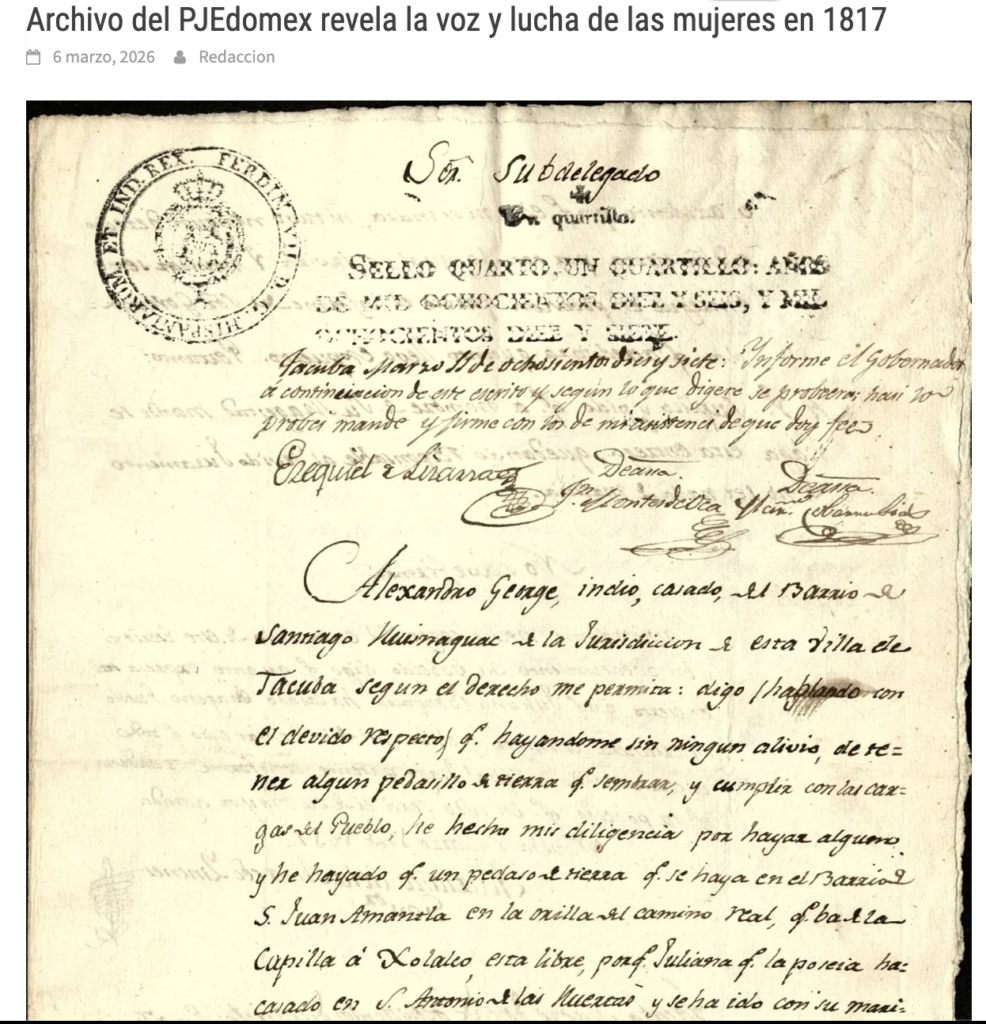 Archivo del PJEdomex revela la voz y lucha de las mujeres en 1817
6 marzo, 2026 Redaccion
FERDIN. VII. D. G. HISPANIARUM. ET. IND. REX.
Sōr. Subdelegado
Un quartillo.
SELLO QUARTO, UN QUARTILLO: AÑOS
DE MIL OCHOCIENTOS DIEZ Y SEIS, Y MIL
OCHOCIENTOS DIEZ Y SIETE.
Tacuba Marzo 11 de ochosientos dies y siete: Informe el Gobernador
á continuacion de este escrito y según lo que digere se probeera; hasi lo
probei mande y firme con los de mi asistencia de que doy fee
Ezequiel de Lizarza
De assa. De assa.
Jn. Montes de Oca
Alexandro George, indio, casado, del Barrio de
Santiago Huisnaguac de la Jurisdicion de esta Villa de
Tacuba segun el derecho me permita: digo (hablando con
el devido respecto) q.e hayandome sin ningun alivio, de te=
ner algun pedasillo de tierra q.e sembrar, y cumplir con las car=
gas del Pueblo, he hecho mis diligencia por hayar alguno,
y he hayado q.e un pedaso de tierra q.e se haya en el Barrio de
S. Juan Amantla en la orilla del camino real, q.e ba de la
Capilla á Xolalco, esta libre, porq.e Juliana q.e la poseia ha=
casado en S. Antonio de las Huertas y se ha ido con su mari=